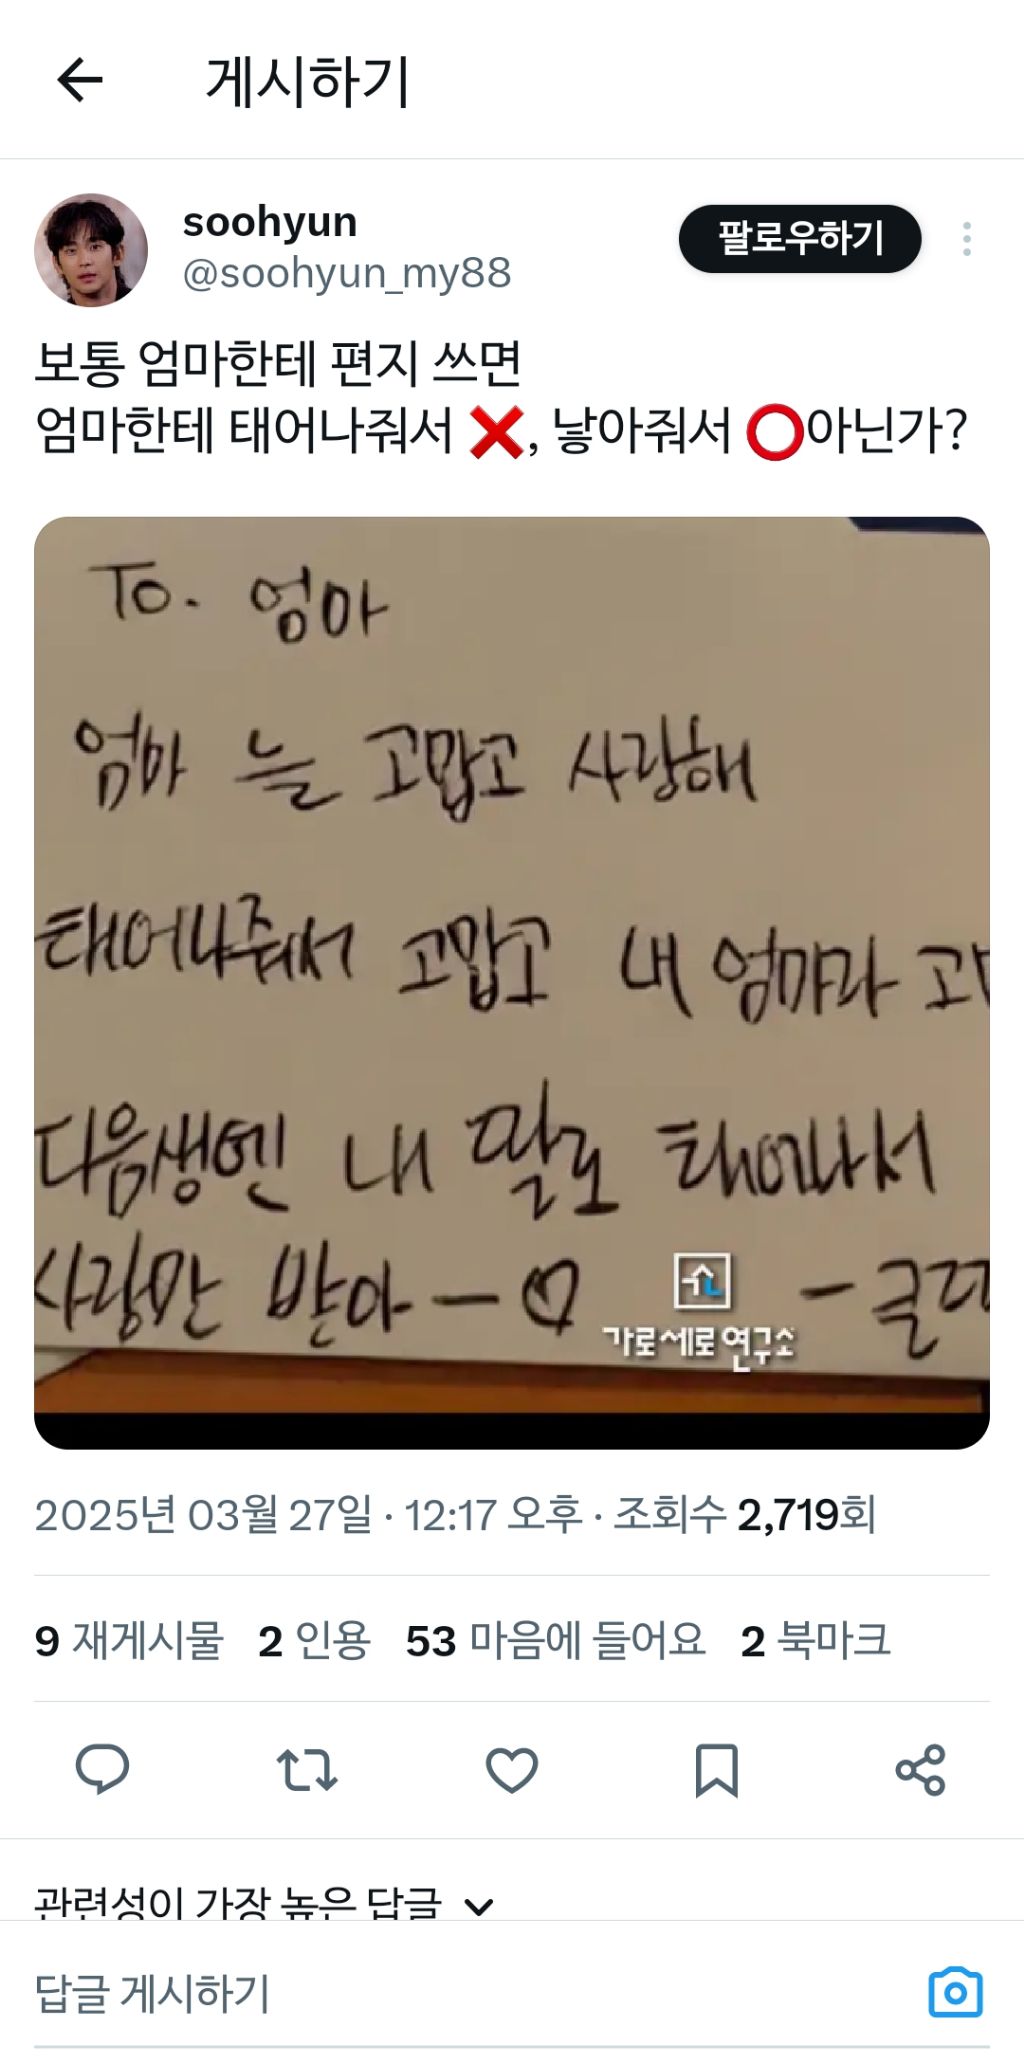 게시하기
soohyun
@soohyun_my88
팔로우하기
보통 엄마한테 편지 쓰면
엄마한테 태어나줘서 ❌, 낳아줘서 ⭕아닌가?
To. 엄마
엄마 늘 고맙고 사랑해
태어나줘서 고맙고 내 엄마라 고
다음생엔 내 딸로 태어나서
사랑만 받아 - ♡
가로세로연구소
2025년 03월 27일 · 12:17 오후 · 조회수 2,719회
9 재게시물 2 인용 53 마음에 들어요 2 북마크
관련성이 가장 높은 답글
답글 게시하기